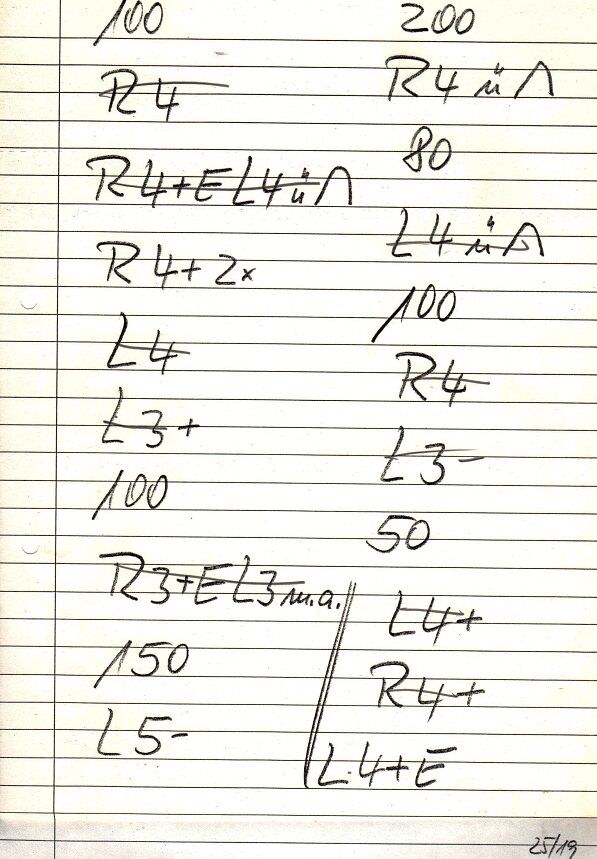 100
R4
R4+EL4ü∧
R4+2x
L4
L3+
100
R3+EL3m.a.
150
L5-
200
R4ü∧
80
L4ü∧
100
R4
L3-
50
L4+
R4+
L4+E
25/19